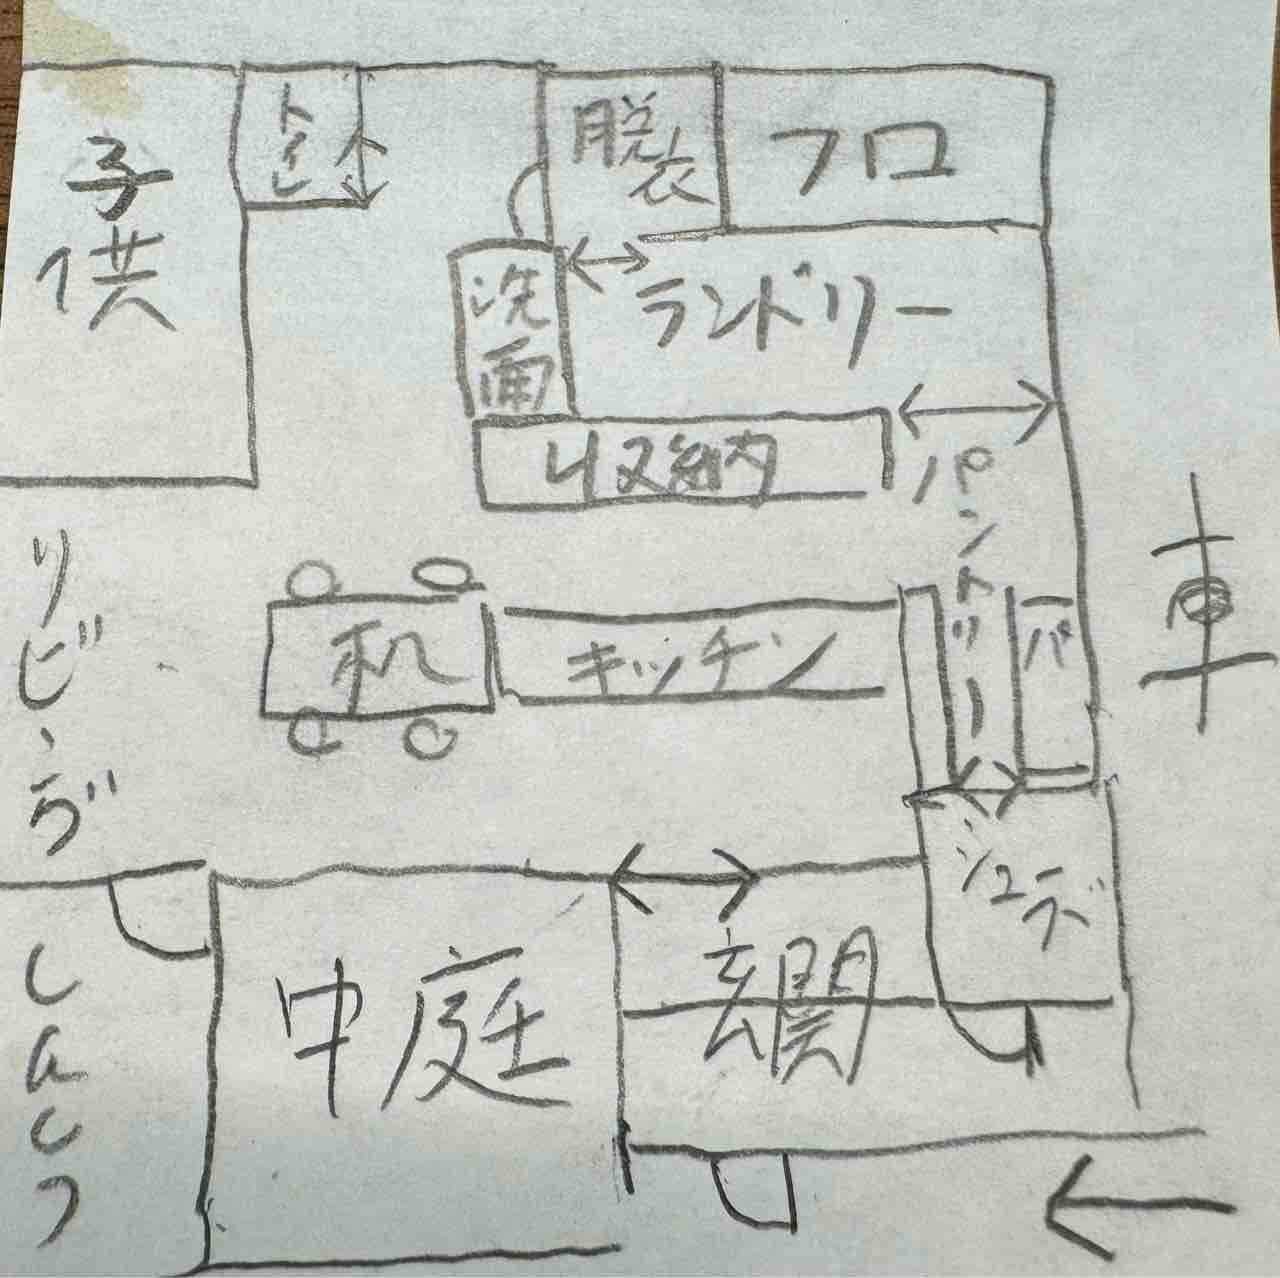 子供
トイレ
脱衣
フロ
洗面
ランドリー
収納
パントリー
パ
車
リビング
机
キッチン
シュラ
しんしつ
中庭
玄関